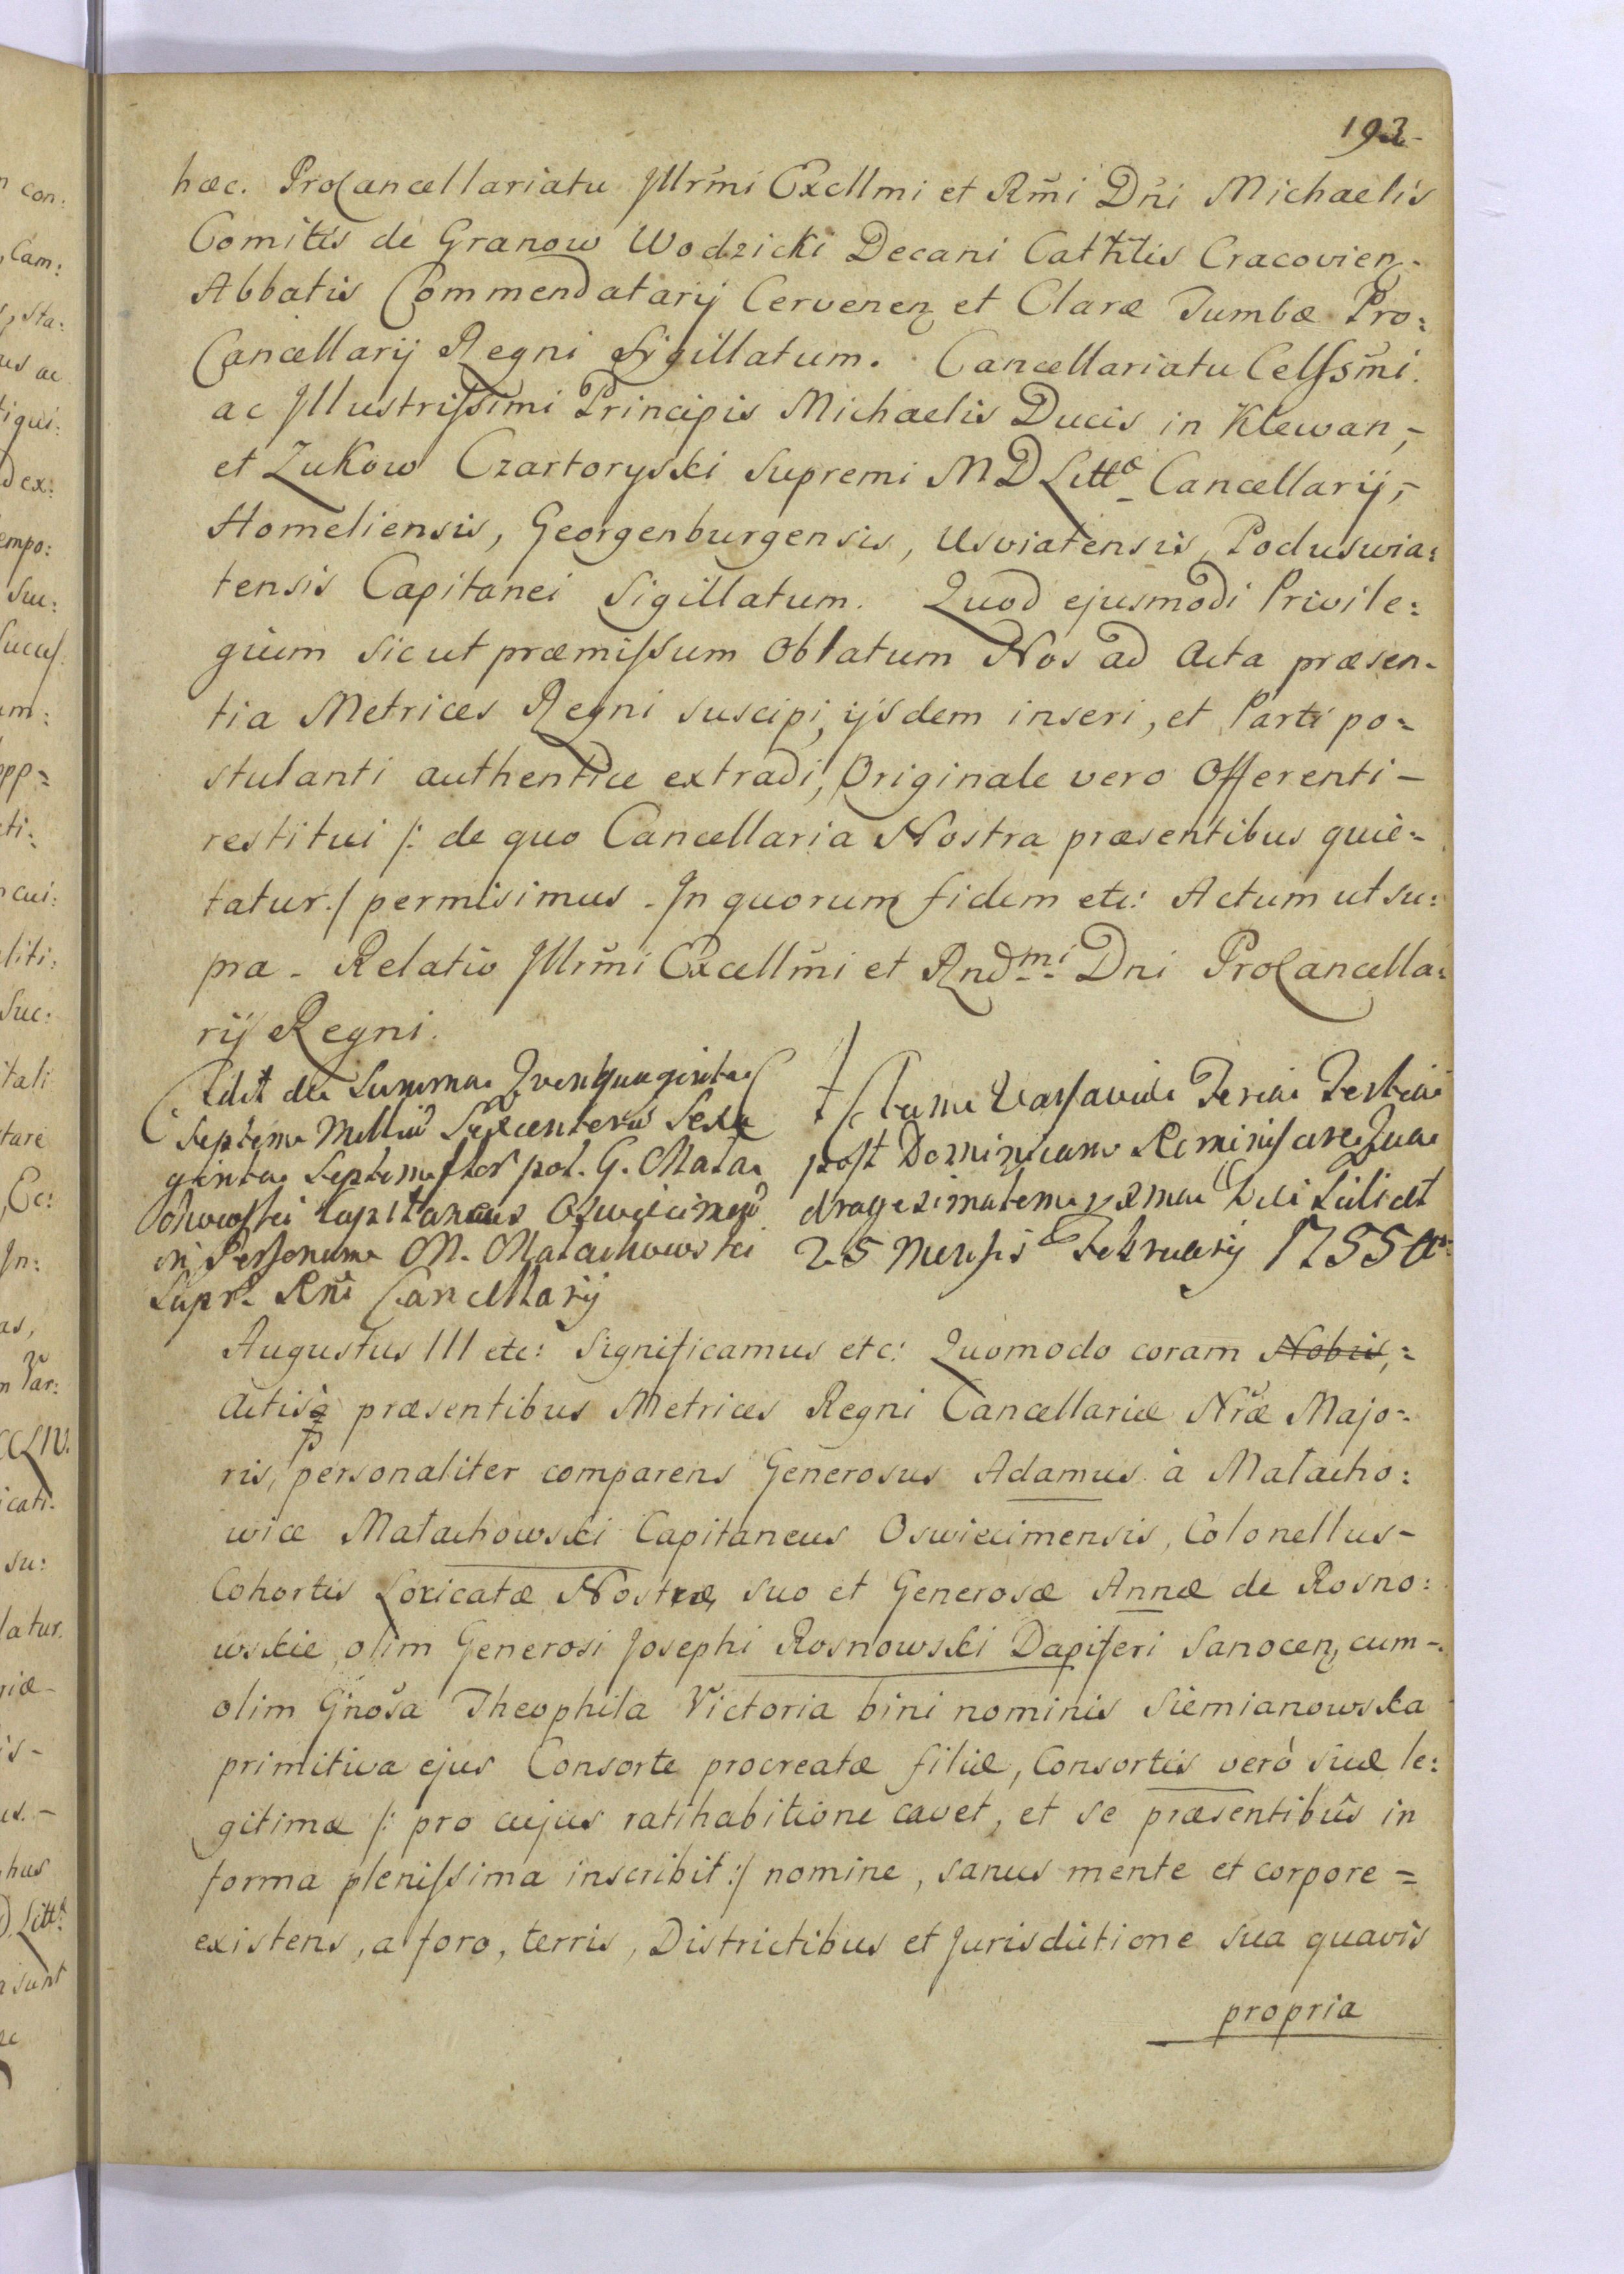 193
hæc. ProCancellariatu Jllr̃mi Excllmi et Rm̃i Dñi Michaelis
Comitis de Granow Wodzicki Decani Cathlis Cracovien.
Abbatis Commendatarij Cervenen et Claræ Tumbæ Pro:
Cancellarij Regni Sigillatum. Cancellariatu Celsſm̃i
ac Jllustriſsimi Principis Michaelis Ducis in Klewan,-
et Zukow Czartoryski Supremi M D Littæ Cancellarij,-
Homeliensis, Georgenburgensis, Usviatensis, Poduswia:
tensis Capitanei Sigillatum. Quod ejusmodi Privile:
gium sicut præmiſsum Oblatum Nos ad Acta præsen-
tia Metrices Regni suscipi, ijsdem inseri, et Parti po-
stulanti authentice extradi, Originale vero Offerenti-
restitui /: de quo Cancellaria Nostra præsentibus quie-
tatur./ permisimus. Jn quorum fidem etc: Actum ut su:
pra. Relatio Jllrm̃i Excellm̃i et Rndmi Dni ProCancella:
rij Regni.
Cedit de Summa Quinquaginta
Septem Mille Sexcentorum Sexa
ginta Septem flor pol. G. Mała
chowski Capitaneus Oswiecimen
in Personam M. Małachowski
Supr. Rni Cancellarij
Actum Varsaviæ Feria Tertia
post Dominicam Reminiscere Qua
dragesimalem proxima Die scilicet
25 Mensis Februarij 1755 A
Augustus III etc: Significamus etc: Quomodo coram Nobis,=
Actisq præsentibus Metrices Regni Cancellariæ Nr̃æ Majo-
ris, personaliter comparens Generosus Adamus à Małacho:
wice Małachowski Capitaneus Oswiecimensis, Colonellus-
Cohortis Loricatæ Nostræ, suo et Generosæ Annæ de Rosno:
wskie, olim Generosi Josephi Rosnowski Dapiferi Sanocen, cum-
olim Gñosa Theophila Victoria bini nominis Siemianowska
primitiva ejus Consorte procreatæ filiæ, Consortis verò suæ le:
gitimæ /: pro cujus ratihabitione cavet, et se præsentibus in
forma pleniſsima inscribit :/ nomine, sanus mente et corpore=
existens, a foro, terris, Districtibus et Jurisdictione sua quavis
propria